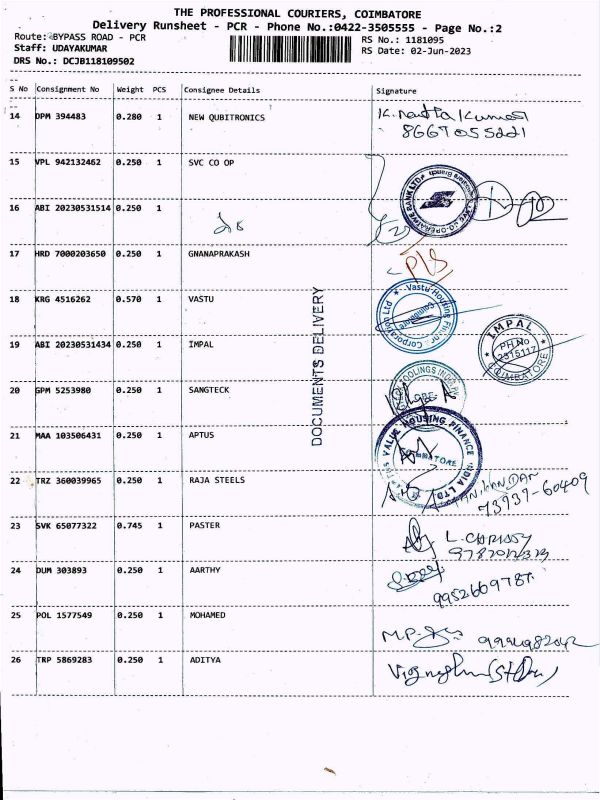 THE PROFESSIONAL COURIERS, COIMBATORE
Delivery Runsheet - PCR - Phone No.:0422-3505555 - Page No.:2
Route: BYPASS ROAD - PCR RS No.: 1181095
Staff: UDAYAKUMAR RS Date: 02-Jun-2023
DRS No.: DCJB118109502
S No Consignment No Weight PCS Consignee Details Signature
14 DPM 394483 0.280 1 NEW QUBITRONICS
8667055221
15 VPL 942132462 0.250 1 SVC CO OP
16 ABI 20230531514 0.250 1
17 HRD 7000203650 0.250 1 GNANAPRAKASH
18 KRG 4516262 0.570 1 VASTU
Vastu Housing Finance Corporation Ltd
Coimbatore
19 ABI 20230531434 0.250 1 IMPAL
IMPAL
PH.No
2315117
COIMBATORE
DOCUMENTS DELIVERY
20 GPM 5253980 0.250 1 SANGTECK
21 MAA 103506431 0.250 1 APTUS
APTUS VALUE HOUSING FINANCE INDIA LTD
COIMBATORE
22 TRZ 360039965 0.250 1 RAJA STEELS
73937-60409
23 SVK 65077322 0.745 1 PASTER
24 DUM 303893 0.250 1 AARTHY
25 POL 1577549 0.250 1 MOHAMED
M.P.
26 TRP 5869283 0.250 1 ADITYA